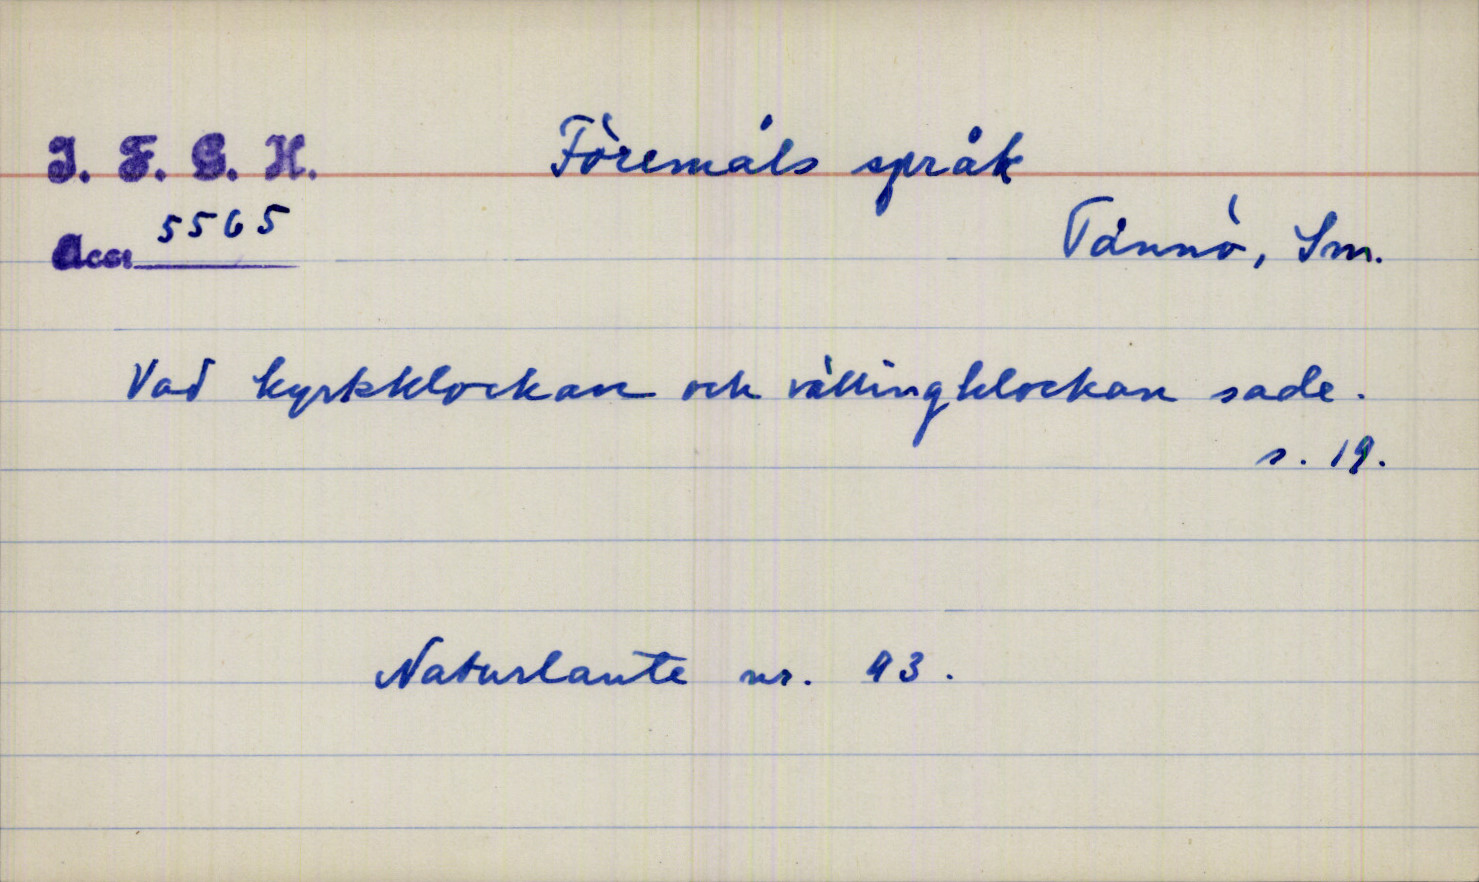 I. F. G. H.
Föremåls språk
Acc. 5565
Tånnö, Sm.
Vad kyrkklockan och vällingklockan sade.
s. 19.
Naturlaute nr. 93.